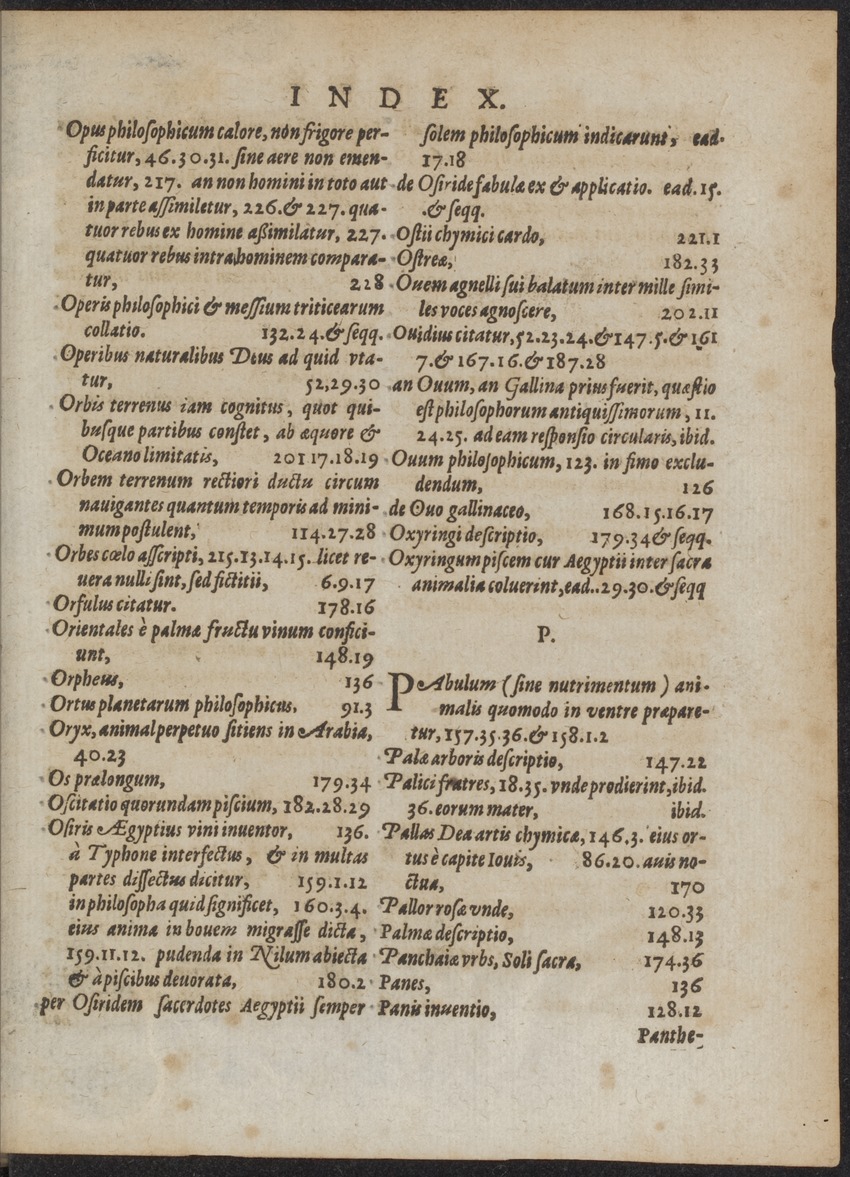 INDEX.
Opus philoſophicum calore, non frigore per-
ficitur, 46.30.31. ſine aere non emen-
datur, 217. an non homini in toto aut
in parte aſſimiletur, 226.& 227. qua-
tuor rebus ex homine aßimilatur, 227.
quatuor rebus intra hominem compara-
tur, 228
Operis philoſophici & meſſium triticearum
collatio. 132.24.& ſeqq.
Operibus naturalibus Deus ad quid vta-
tur, 52,29.30
Orbis terrenus iam cognitus, quot qui-
buſque partibus conſtet, ab æquore &
Oceano limitatis, 201 17.18.19
Orbem terrenum rectiori ductu circum
nauigantes quantum temporis ad mini-
mum poſtulent, 114.27.28
Orbes cœlo aſſcripti, 215.13.14.15. licet re-
uera nulli ſint, ſed fictitii, 6.9.17
Orfulus citatur. 178.16
Orientales è palmæ fructu vinum confici-
unt, 148.19
Orpheus, 136
Ortus planetarum philoſophicus, 91.3
Oryx, animal perpetuo ſitiens in Arabia,
40.23
Os prælongum, 179.34
Oſcitatio quorundam piſcium, 182.28.29
Oſiris Ægyptius vini inuentor, 136.
à Typhone interfectus, & in multas
partes diſſectus dicitur, 159.1.12
in philoſopha quid ſignificet, 160.3.4.
eius anima in bouem migraſſe dicta,
159.11.12. pudenda in Nilum abiecta
& à piſcibus deuorata, 180.2
per Oſiridem ſacerdotes Aegyptii ſemper
ſolem philoſophicum indicarunt, ead.
17.18
de Oſiride fabulæ ex & applicatio. ead.15.
& ſeqq.
Oſtii chymici cardo, 221.1
Oſtreæ, 182.33
Ouem agnelli ſui balatum inter mille ſimi-
les voces agnoſcere, 202.11
Ouidius citatur, 52.23.24.& 147.5.& 161
7.& 167.16.& 187.28
an Ouum, an Gallina prius fuerit, quæſtio
eſt philoſophorum antiquiſſimorum, 11.
24.25. ad eam reſponſio circularis, ibid.
Ouum philoſophicum, 123. in fimo exclu-
dendum, 126
de Ouo gallinaceo, 168.15.16.17
Oxyringi deſcriptio, 179.34 & ſeqq.
Oxyringum piſcem cur Aegyptii inter ſacra
animalia coluerint, ead..29.30.& ſeqq
P.
PAbulum (ſine nutrimentum) ani-
malis quomodo in ventre præpare-
tur, 157.35.36.& 158.1.2
Palæ arboris deſcriptio, 147.22
Palici fratres, 18.35. vnde prodierint, ibid.
36. eorum mater, ibid.
Pallas Dea artis chymicæ, 146.3. eius or-
tus è capite Iouis, 86.20. auis no-
ctua, 170
Pallor roſæ vnde, 120.33
Palmæ deſcriptio, 148.13
Panchaiæ vrbs, Soli ſacra, 174.36
Panes, 136
Panis inuentio, 128.12
Panthe-